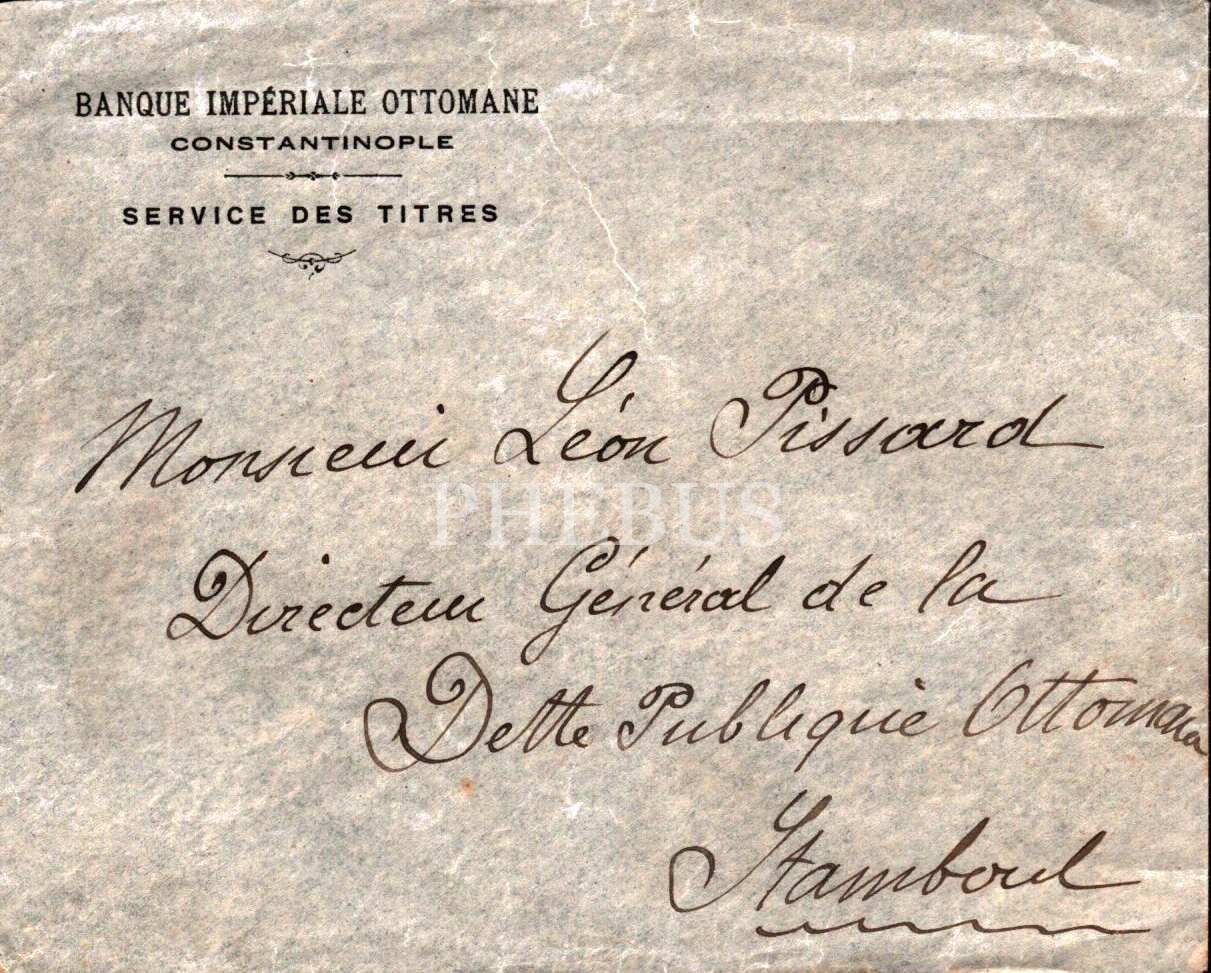 BANQUE IMPÉRIALE OTTOMANE
CONSTANTINOPLE
SERVICE DES TITRES
Monsieur Léon Pissard
PHEBUS
Directeur Général de la
Dette Publique Ottomane
Stamboul